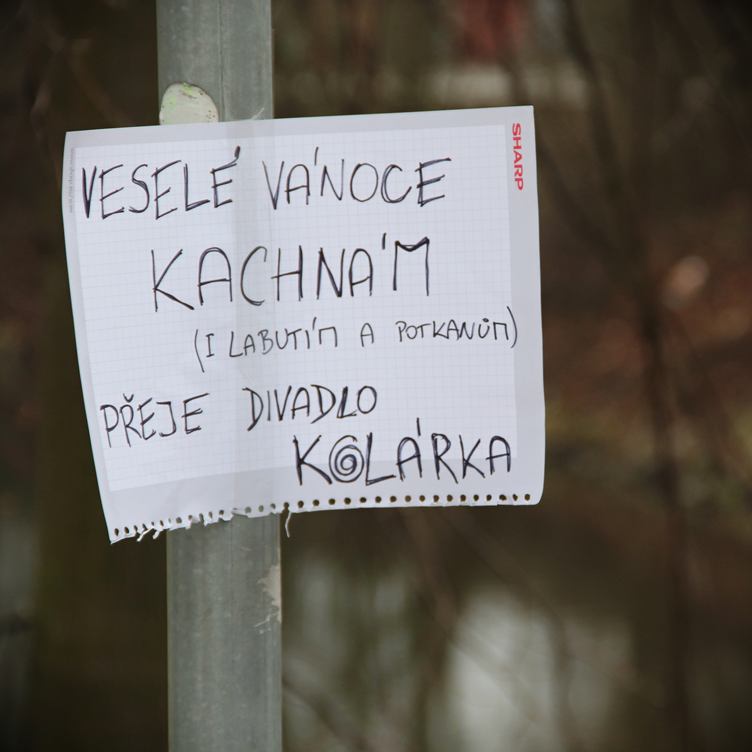 SHARP
VESELÉ VÁNOCE
KACHNÁM
(I LABUTÍM A POTKANŮM)
PŘEJE DIVADLO
KOLÁRKA